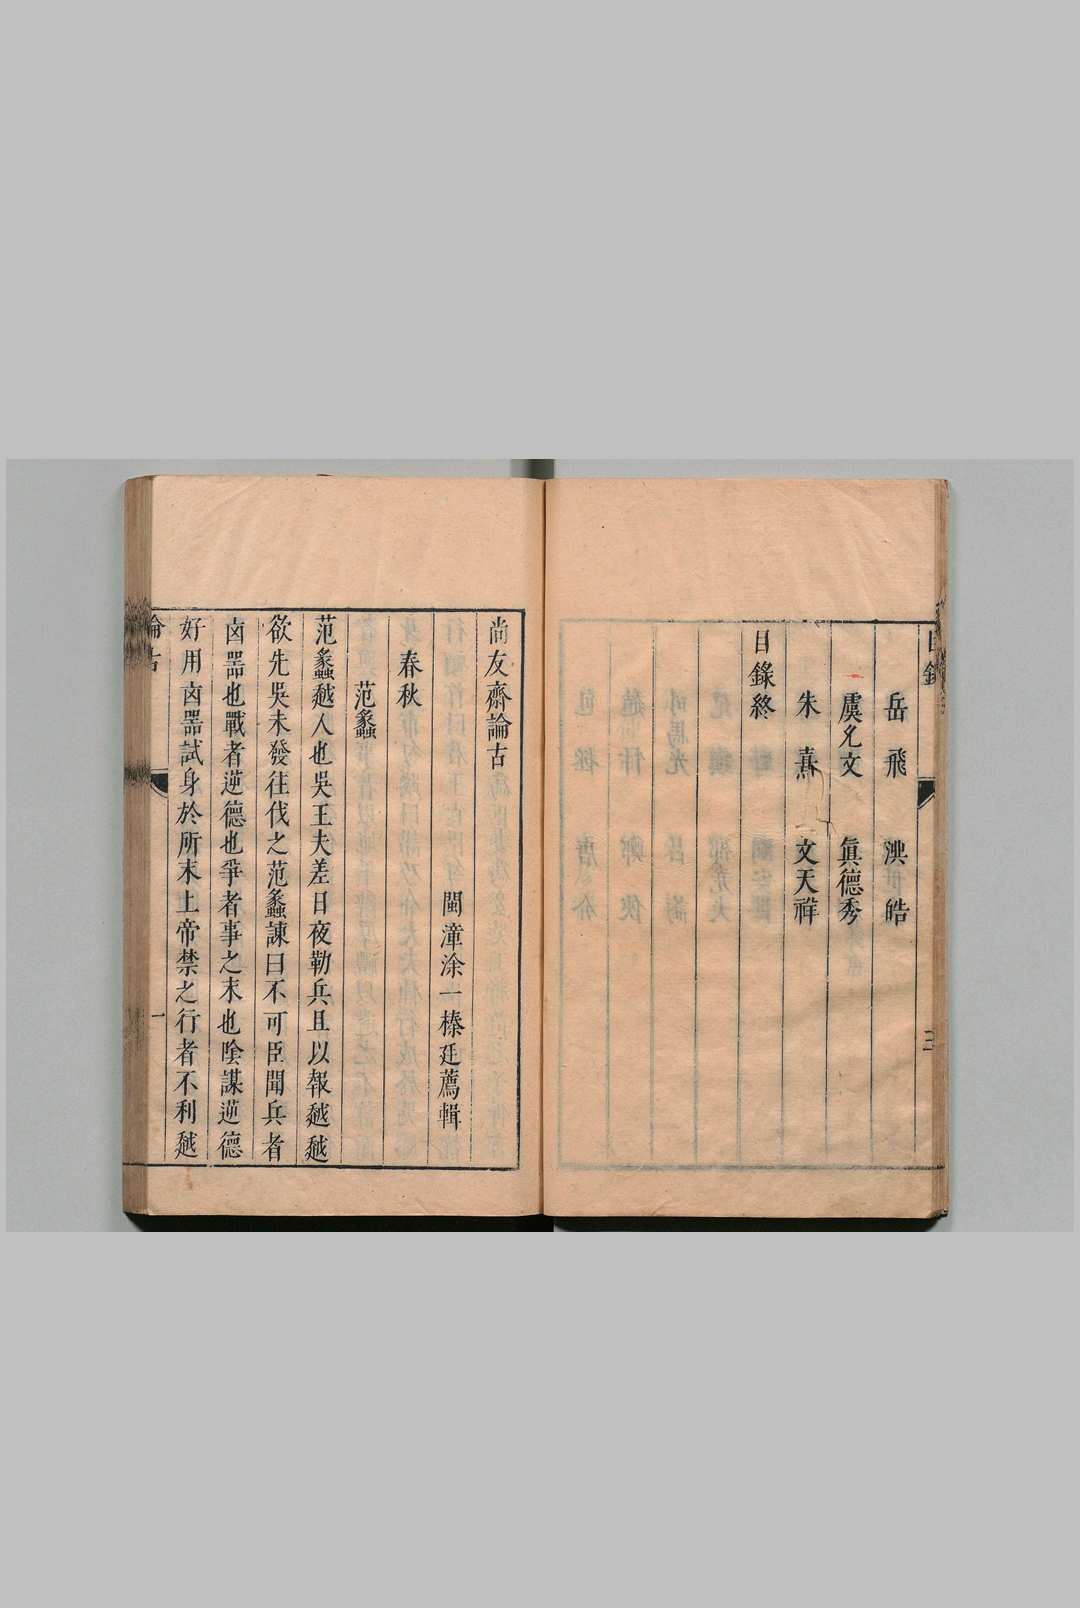 目錄
三
岳飛 洪皓
虞允文 眞德秀
朱熹 文天祥
目錄終
尚友齋論古
閩漳涂一榛廷薦輯
春秋
范蠡
范蠡越人也吳王夫差日夜勒兵且以報越越
欲先吳未發往伐之范蠡諫曰不可臣聞兵者
凶噐也戰者逆德也爭者事之末也陰謀逆德
好用凶噐試身於所末上帝禁之行者不利越
論古
一